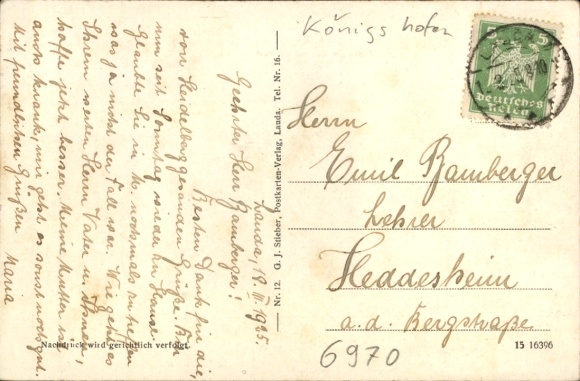 Königshofen
Deutsches Reich
5
Herrn
Emil Bamberger
Lehrer
Heddesheim
a. d. Bergstraße
6970
15 16396
Nachdruck wird gerichtlich verfolgt.
Nr. 12. G. J. Stieber, Postkarten-Verlag, Lauda. Tel. Nr. 16.
Lauda, 12. 1925
Geehrter Herr Bamberger!
Besten Dank für die,
von Heidelberg gesandten Grüße. Bin
nun seit Sonntag wieder in Hause
Glaubte Sie in K. nochmals zu treffen
was ja nicht der Fall war. Wie geht es
Ihrem werten Herrn Vater u.
hoffe jetzt besser. Meine Mutter ist
auch krank, mir geht es sonst noch gut.
Mit freundlichen Grüßen
Maria